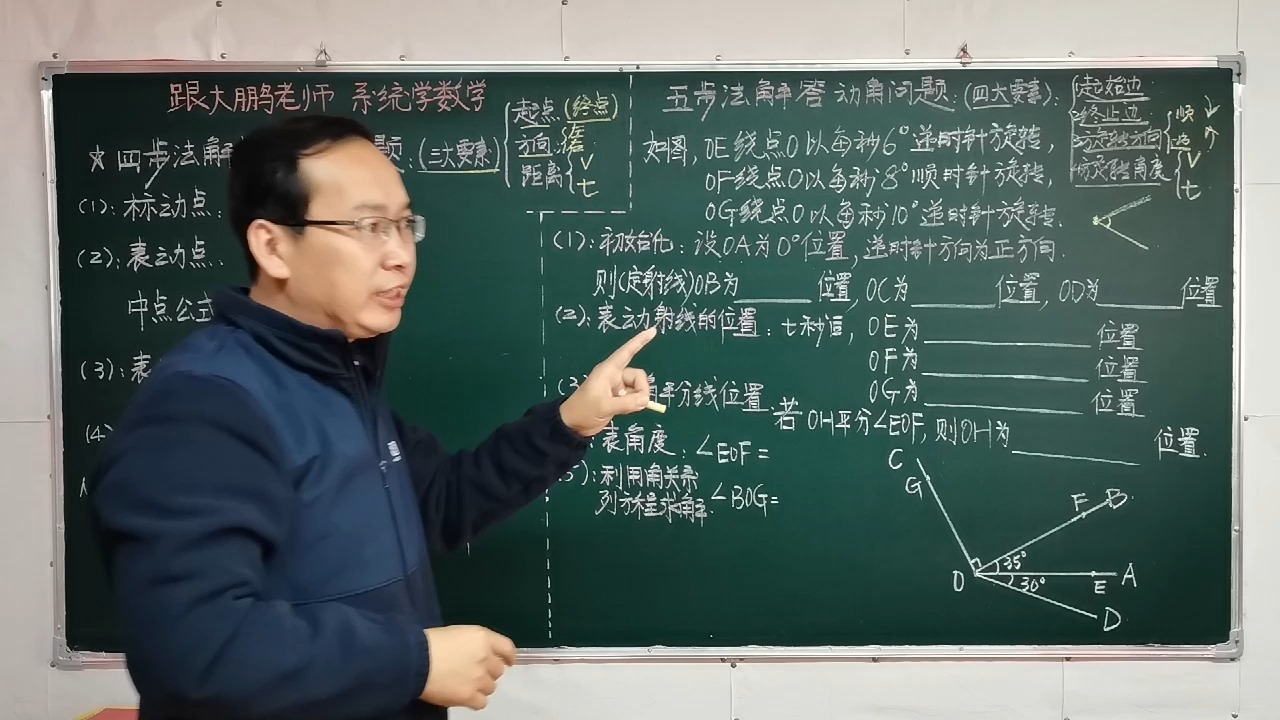 跟大鹏老师 系统学数学
☆四步法解 题:(三大要素)
起点(终点)
方向:左
距离 V
t
(1):标动点:
(2):表动点:
中点公式
(3):表
(4)
五步法解答动角问题:(四大要素):
起始边
终止边
旋转方向 顺
逆
旋转角度 V
t
如图,OE绕点O以每秒6°逆时针旋转,
OF绕点O以每秒8°顺时针旋转,
OG绕点O以每秒10°逆时针旋转.
(1):初始化:设OA为0°位置,逆时针方向为正方向.
则(定射线)OB为______位置,OC为______位置,OD为______位置
(2):表动射线的位置:t秒后,OE为____________位置
OF为____________位置
OG为____________位置
平分线位置 若OH平分∠EOF,则OH为__________位置.
:表角度:∠EOF=
5):利用角关系
列方程求解. ∠BOG=
C
G
F B
35°
O
30°
E A
D